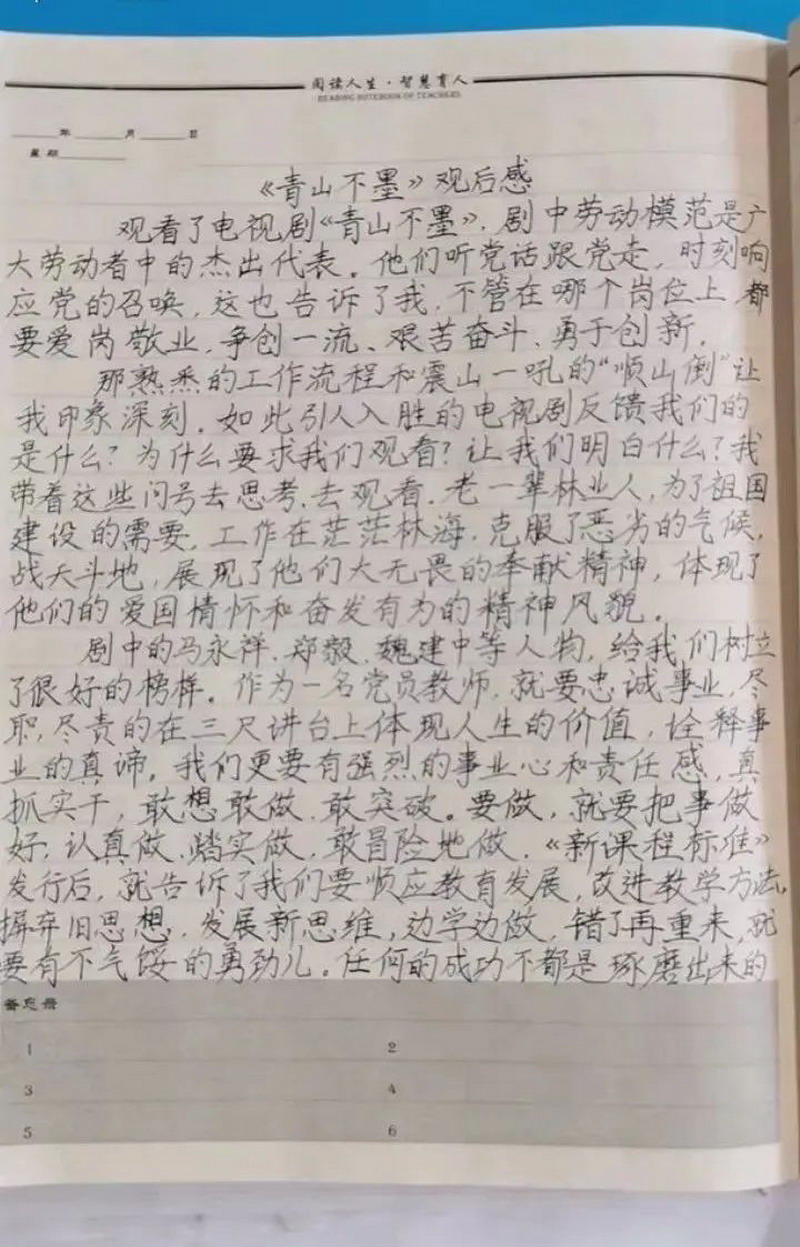 阅读人生·智慧育人
READING NOTEBOOK OF TEACHERS
年 月 日
星期
《青山不墨》观后感
观看了电视剧《青山不墨》，剧中劳动模范是广
大劳动者中的杰出代表。他们听党话跟党走，时刻响
应党的召唤，这也告诉了我，不管在哪个岗位上，都
要爱岗敬业、争创一流、艰苦奋斗、勇于创新。
那熟悉的工作流程和震山一吼的“顺山倒”让
我印象深刻。如此引人入胜的电视剧反馈我们的
是什么？为什么要求我们观看？让我们明白什么？我
带着这些问号去思考、去观看。老一辈林业人，为了祖国
建设的需要，工作在茫茫林海，克服了恶劣的气候，
战天斗地，展现了他们大无畏的奉献精神，体现了
他们的爱国情怀和奋发有为的精神风貌。
剧中的马永祥、郑毅、魏建中等人物，给我们树立
了很好的榜样。作为一名党员教师，就要忠诚事业，尽
职，尽责的在三尺讲台上体现人生的价值，诠释事
业的真谛，我们更要有强烈的事业心和责任感，真
抓实干，敢想敢做、敢突破。要做，就要把事做
好，认真做、踏实做，敢冒险地做，《新课程标准》
发行后，就告诉了我们要顺应教育发展，改进教学方法，
摒弃旧思想，发展新思维，边学边做，错了再重来，就
要有不气馁的勇劲儿。任何的成功不都是琢磨出来的
备忘录
1 2
3 4
5 6